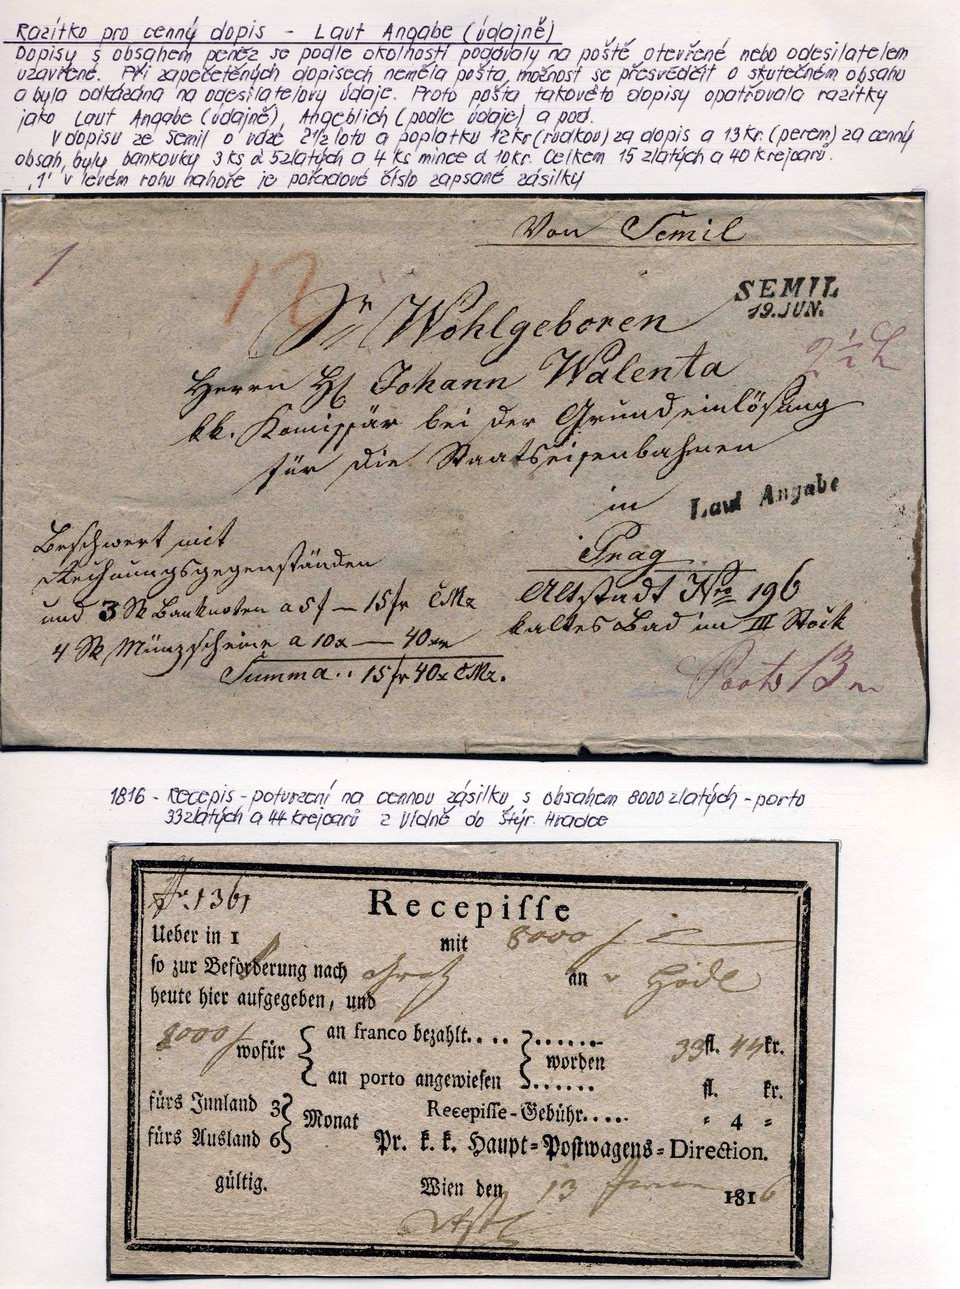 Razítko pro cenný dopis - Laut Angabe (údajně)
Dopisy s obsahem peněz se podle okolností podávaly na poště otevřené nebo odesilatelem
uzavřené. Při zapečetěných dopisech neměla pošta možnost se přesvědčit o skutečném obsahu
a byla odkázána na odesilatelovy údaje. Proto pošta takovéto dopisy opatřovala razítky
jako Laut Angabe (údajně), Angeblich (podle údaje) a pod.
V dopisu ze Semil o váze 2 1/2 lotu a poplatku 12 kr (rudkou) za dopis a 13 kr. (perem) za cenný
obsah, byly bankovky 3 ks á 5 zlatých a 4 ks mince á 10 kr. Celkem 15 zlatých a 40 krejcarů.
"1" v levém rohu nahoře je pořadové číslo zapsané zásilky
Von Semil
1
12
SEMIL
19. JUN.
Sr Wohlgeboren
2 1/2 L
Herrn H. Johann Walenta
kk. Komißär bei der Grundeinlösung
für die Staatseisenbahnen
in
Laut Angabe
Prag
Altstadt Nro 196
kaltes Bad im III Stock
Beschwert mit
Rechnungsgegenständen
und 3 Stk Banknoten a 5f — 15 fr CMz
4 Stk Münzscheine a 10x — 40x
Summa .. 15 fr 40x CMz.
Porto 13
1816 - Recepis - potvrzení na cennou zásilku s obsahem 8000 zlatých - porto
33 zlatých a 44 krejcarů z Vídně do Štýr. Hradce
Nr. 1361
Recepiſſe
Ueber in 1
mit 8000 f
ſo zur Beförderung nach Gratz an v Hödl
heute hier aufgegeben, und
8000 f wofür
an franco bezahlt....
an porto angewieſen
worden
33 fl. 44 kr.
fl. kr.
fürs Innland 3
fürs Ausland 6
Monat
Recepiſſe-Gebühr..... = 4 =
Pr. k. k. Haupt-Poſtwagens-Direction.
gültig.
Wien den 13 1816